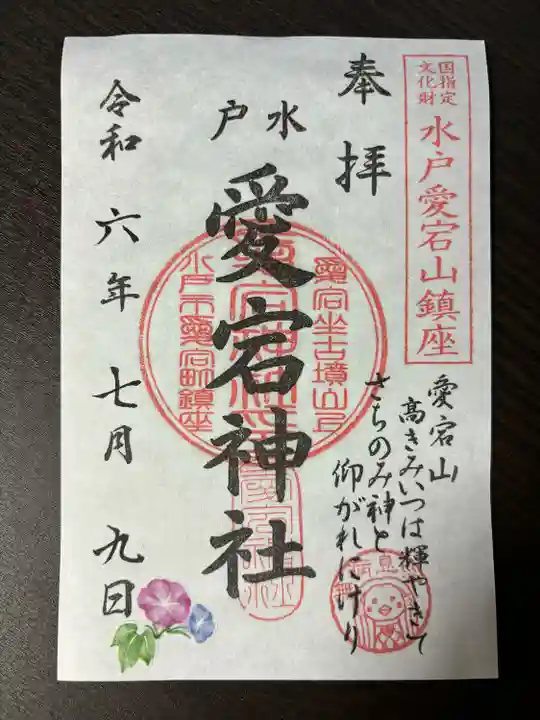 国指定
文化財
水戸愛宕山鎮座
奉拝
水戸
愛宕神社
愛宕山
高きみいつは輝やきて
さちのみ神と
仰がれにけり
令和六年七月九日
愛宕坐古墳山上
水戸市愛宕町鎮座